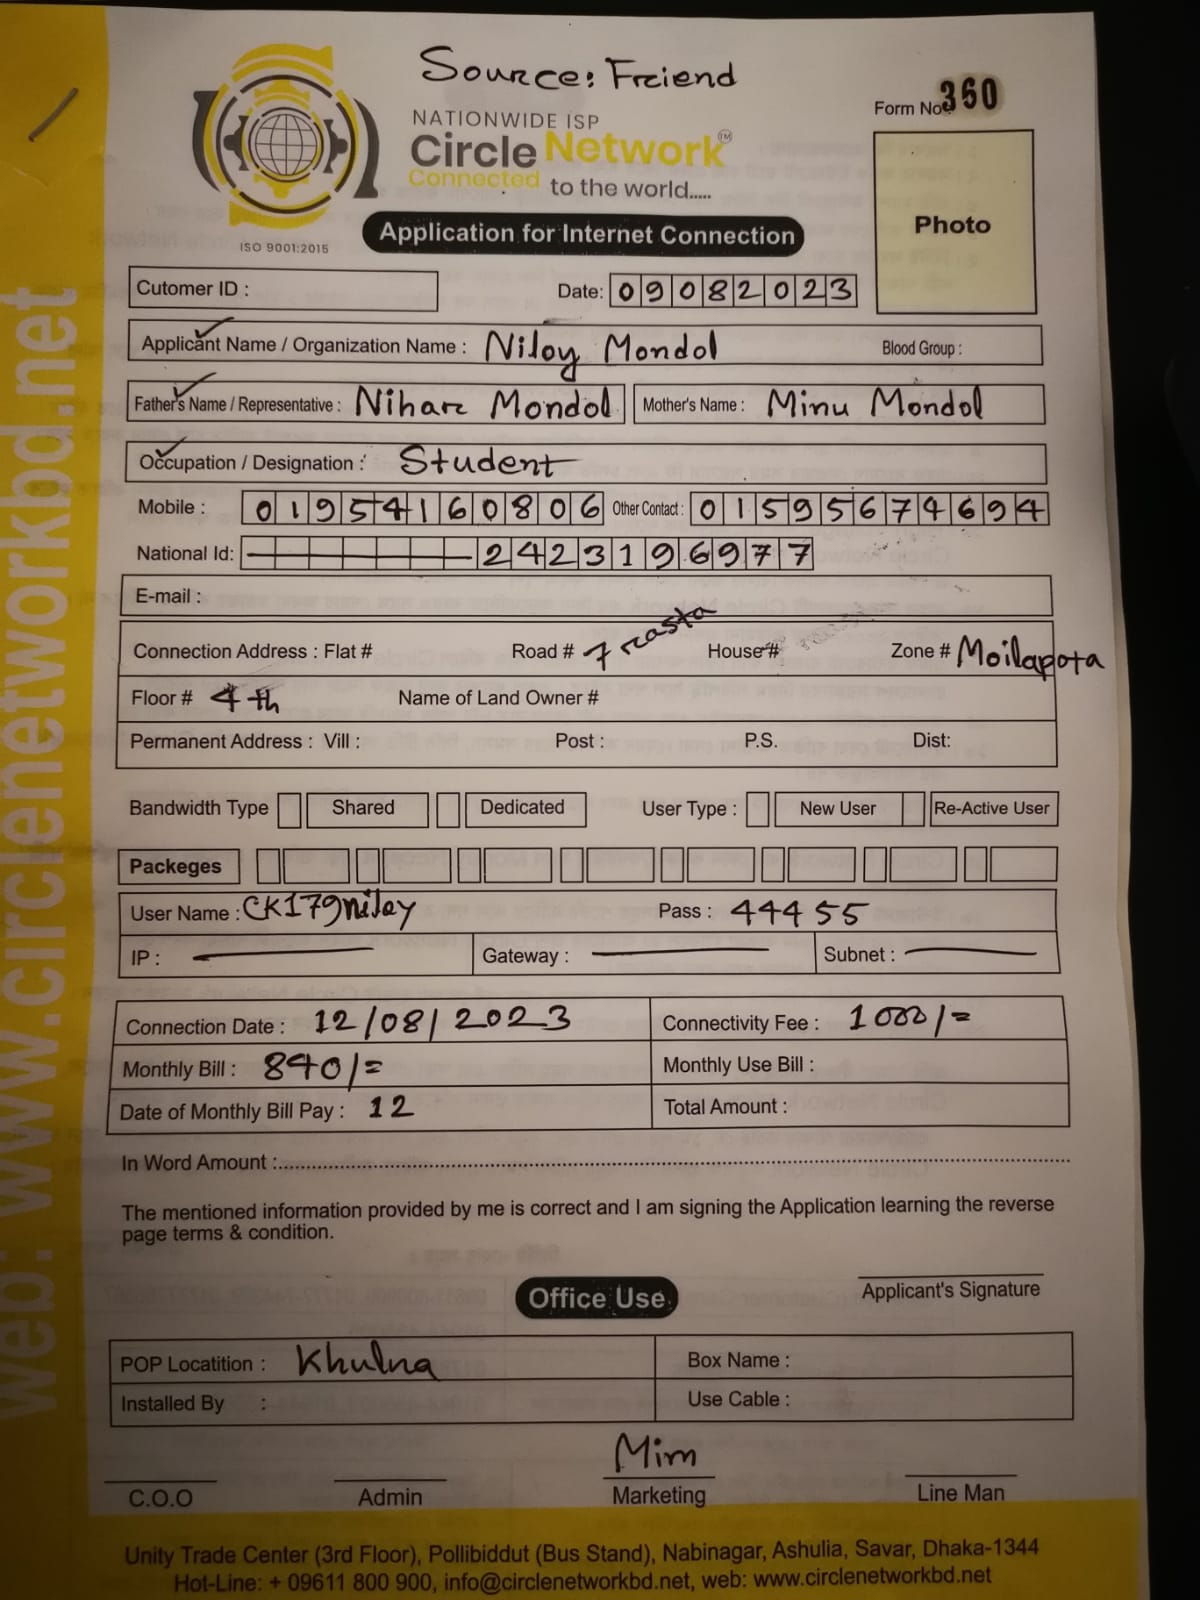 Source: Freiend
Form No: 360
NATIONWIDE ISP
Circle Network™
Connected to the world.....
ISO 9001:2015
Application for Internet Connection
Photo
Cutomer ID :
Date: 09082023
Applicant Name / Organization Name : Niloy Mondol Blood Group :
Father's Name / Representative : Nihar Mondol Mother's Name : Minu Mondol
Occupation / Designation : Student
Mobile : 01954160806 Other Contact : 01595674694
National Id: 2423196977
E-mail :
Connection Address : Flat # Road # 7 rasta House # Zone # Moilapota
Floor # 4th Name of Land Owner #
Permanent Address : Vill : Post : P.S. Dist:
Bandwidth Type Shared Dedicated User Type : New User Re-Active User
Packeges
User Name : CK179niloy Pass : 44455
IP : Gateway : Subnet :
Connection Date : 12/08/2023 Connectivity Fee : 1000/=
Monthly Bill : 840/= Monthly Use Bill :
Date of Monthly Bill Pay : 12 Total Amount :
In Word Amount :
The mentioned information provided by me is correct and I am signing the Application learning the reverse
page terms & condition.
Applicant's Signature
Office Use
POP Locatition : Khulna Box Name :
Installed By : Use Cable :
Mim
C.O.O Admin Marketing Line Man
Unity Trade Center (3rd Floor), Pollibiddut (Bus Stand), Nabinagar, Ashulia, Savar, Dhaka-1344
Hot-Line: + 09611 800 900, info@circlenetworkbd.net, web: www.circlenetworkbd.net
web: www.circlenetworkbd.net